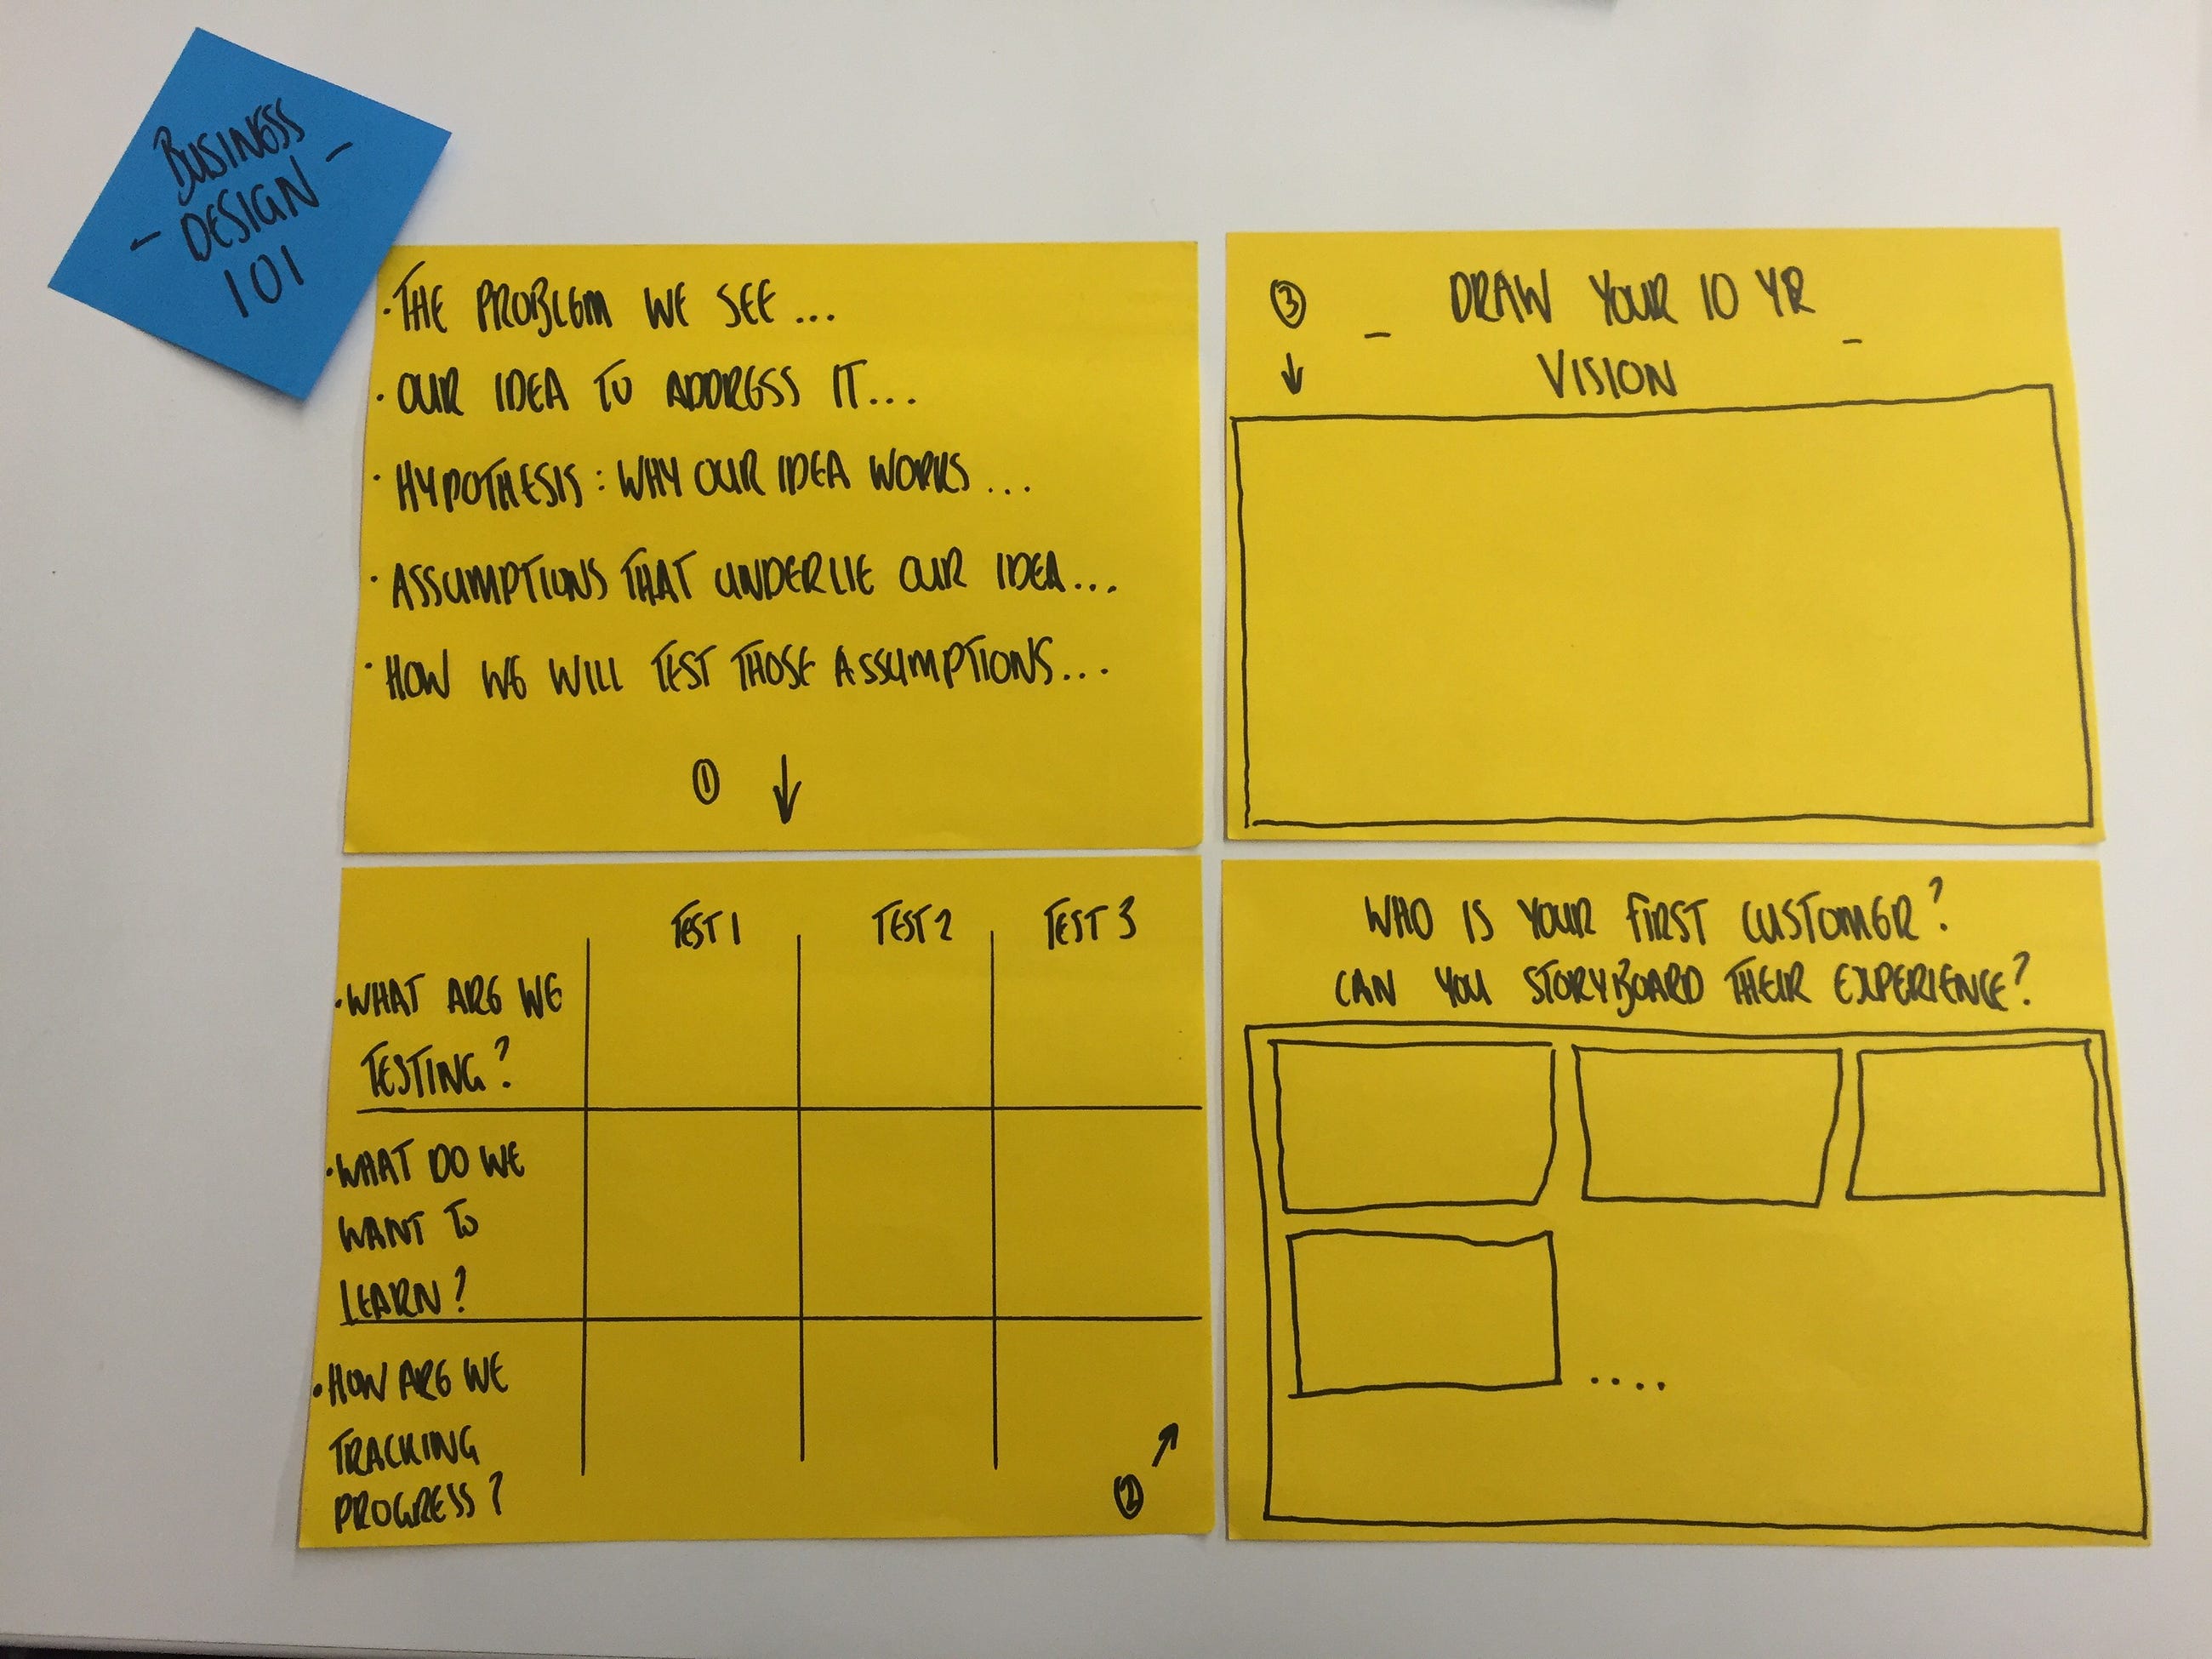 BUSINESS
- DESIGN -
101
·THE PROBLEM WE SEE ...
· OUR IDEA TO ADDRESS IT...
· HYPOTHESIS : WHY OUR IDEA WORKS ...
· ASSUMPTIONS THAT UNDERLIE OUR IDEA...
· HOW WE WILL TEST THOSE ASSUMPTIONS...
① ↓
TEST 1 TEST 2 TEST 3
·WHAT ARE WE
TESTING?
·WHAT DO WE
WANT TO
LEARN?
·HOW ARE WE
TRACKING
PROGRESS?
② ↗
③ - DRAW YOUR 10 YR -
↓ VISION
WHO IS YOUR FIRST CUSTOMER?
CAN YOU STORYBOARD THEIR EXPERIENCE?
....